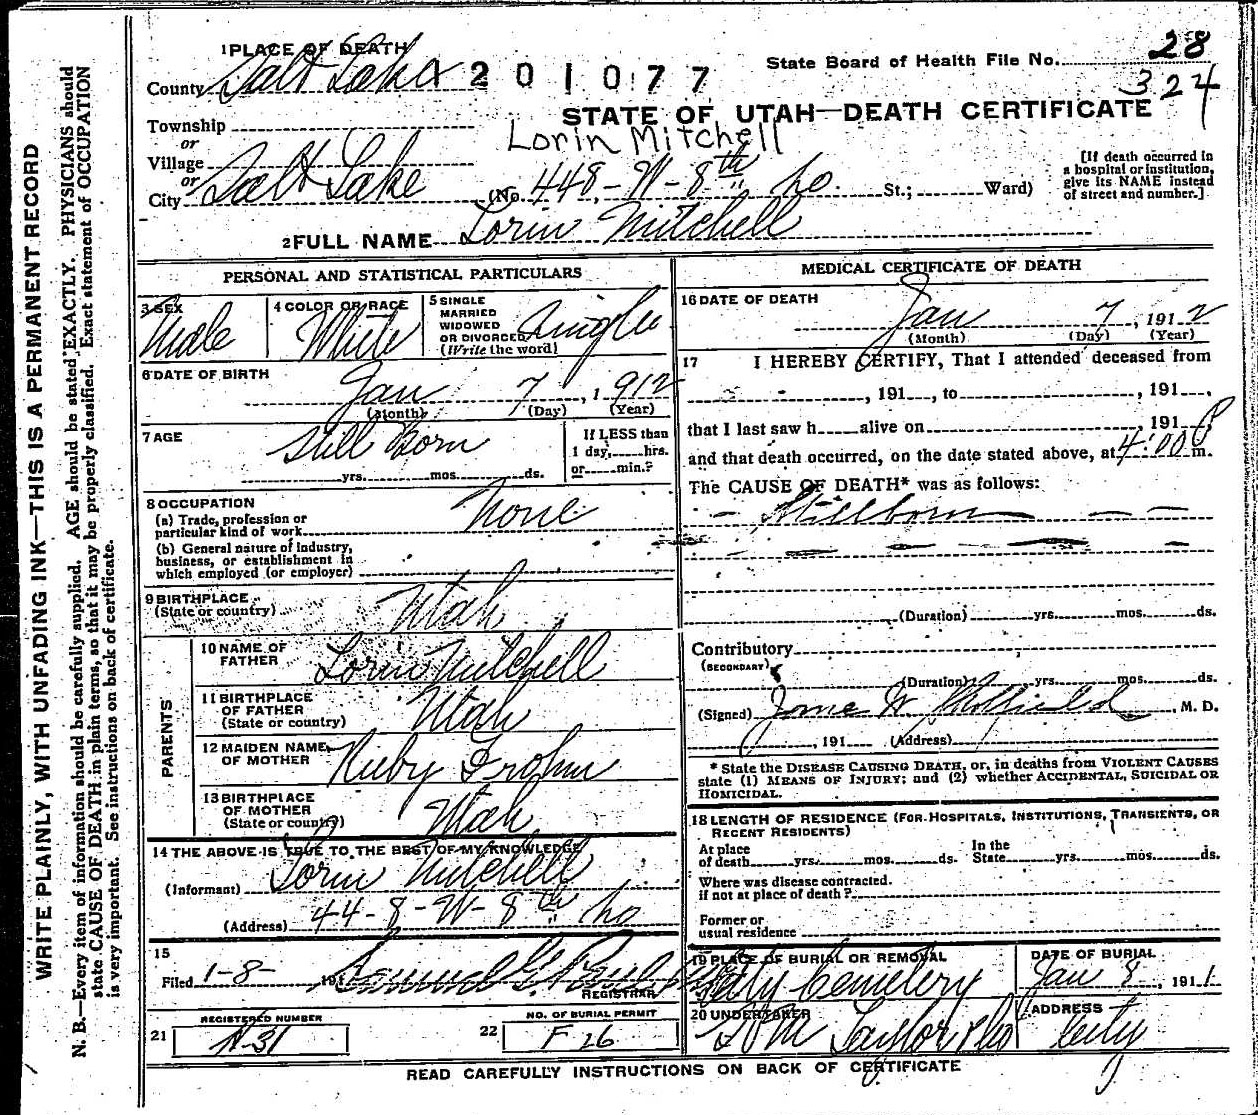 WRITE PLAINLY, WITH UNFADING INK—THIS IS A PERMANENT RECORD
N. B.—Every item of information should be carefully supplied. AGE should be stated EXACTLY. PHYSICIANS should
state CAUSE OF DEATH in plain terms, so that it may be properly classified. Exact statement of OCCUPATION
is very important. See instructions on back of certificate.
1 PLACE OF DEATH
County Salt Lake
1201077
State Board of Health File No. 28
324
STATE OF UTAH—DEATH CERTIFICATE
Township
or
Village
or
City Salt Lake
Lorin Mitchell
(No. 448-W-8th So. St.; Ward)
[If death occurred in
a hospital or institution,
give its NAME instead
of street and number.]
2 FULL NAME Lorin Mitchell
PERSONAL AND STATISTICAL PARTICULARS
3 SEX
Male
4 COLOR OR RACE
White
5 SINGLE
MARRIED
WIDOWED
OR DIVORCED
(Write the word)
Single
6 DATE OF BIRTH
Jan 7, 1912
(Month) (Day) (Year)
7 AGE
Still Born
yrs. mos. ds.
If LESS than
1 day, hrs.
or min.?
8 OCCUPATION
(a) Trade, profession or
particular kind of work None
(b) General nature of industry,
business, or establishment in
which employed (or employer)
9 BIRTHPLACE
(State or country) Utah
PARENTS
10 NAME OF
FATHER Lorin Mitchell
11 BIRTHPLACE
OF FATHER
(State or country) Utah
12 MAIDEN NAME
OF MOTHER Ruby Frohm
13 BIRTHPLACE
OF MOTHER
(State or country) Utah
14 THE ABOVE IS TRUE TO THE BEST OF MY KNOWLEDGE
(Informant) Lorin Mitchell
(Address) 44-8-W-8th So
15
Filed 1-8- 191 Samuel G.
REGISTRAR
21 REGISTERED NUMBER
A-31
22 NO. OF BURIAL PERMIT
F 26
MEDICAL CERTIFICATE OF DEATH
16 DATE OF DEATH
Jan 7, 1912
(Month) (Day) (Year)
17 I HEREBY CERTIFY, That I attended deceased from
, 191 , to , 191 ,
that I last saw h alive on , 191
and that death occurred, on the date stated above, at 4:00 P m.
The CAUSE OF DEATH* was as follows:
- Stillborn - -
(Duration) yrs. mos. ds.
Contributory
(SECONDARY)
(Duration) yrs. mos. ds.
(Signed) M. D.
, 191 (Address)
* State the DISEASE CAUSING DEATH, or, in deaths from VIOLENT CAUSES
state (1) MEANS OF INJURY; and (2) whether ACCIDENTAL, SUICIDAL OR
HOMICIDAL.
18 LENGTH OF RESIDENCE (FOR HOSPITALS, INSTITUTIONS, TRANSIENTS, OR
RECENT RESIDENTS)
At place
of death yrs. mos. ds.
In the
State yrs. mos. ds.
Where was disease contracted.
if not at place of death?
Former or
usual residence
19 PLACE OF BURIAL OR REMOVAL
City Cemetery
DATE OF BURIAL
Jan 8, 1911
20 UNDERTAKER
Taylor & Co
ADDRESS
City
READ CAREFULLY INSTRUCTIONS ON BACK OF CERTIFICATE